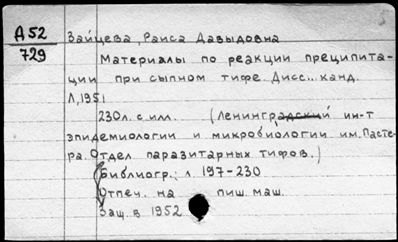 А52
729
Зайцева, Раиса Давыдовна
Материалы по реакции преципита-
ции при сыпном тифе. Дисс.. канд.
Л, 1951
230л. с илл. (Ленинградский ин-т
эпидемиологии и микробиологии им. Пасте-
ра. Отдел паразитарных тифов.)
Библиогр.: л. 197-230
Отпеч. на пиш. маш.
Защ. в 1952